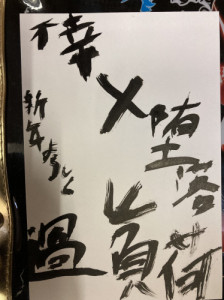 不幸
×
堕落
新年よろしく
過負荷